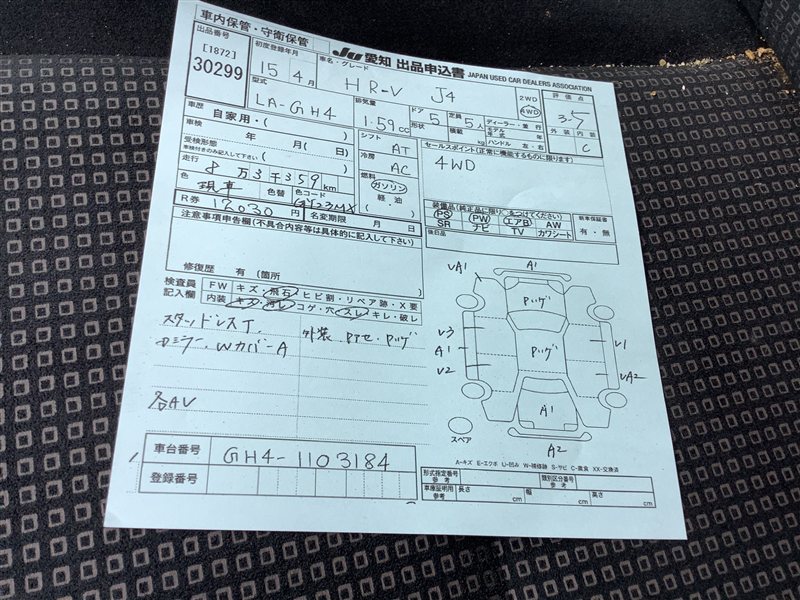 車内保管・守衛保管
JU 愛知 出品申込書 JAPAN USED CAR DEALERS ASSOCIATION
出品番号
[1872]
30299
初度登録年月
15年4月
車名・グレード
HR-V J4
2WD
4WD
評価点
3.5
外装 内装
C
型式
LA-GH4
排気量
1.59cc
ドア
形状
5
定員
積載
5人
kg
ディーラー・並行
モデル 年
ハンドル 左・右
車歴
自家用・( )
車検
年 月( 日)
シフト
AT
受検形態
車検付きのみ記入して下さい
( )
冷房
AC
走行
8万3千359km
燃料
ガソリン
軽油
( )
色
現車
色替
色コード
R券
12030円
名変期限 月 日
セールスポイント(正常に機能するものに限ります)
4WD
装備品(純正品に限り、○をつけてください)
PS PW エアB AW
SR ナビ TV カワシート
後日品
新車保証書
有・無
注意事項申告欄(不具合内容等は具体的に記入して下さい)
修復歴 有 (箇所
検査員
記入欄
FW キズ・飛石・ヒビ割・リペア跡・X要
内装 キズ・汚レ・コゲ・穴・スレ・キレ・破レ
スタッドレスT.
外装
Wカバー A
各AV
VA1
A1
V3
A1
V2
V1
VA2
A1
A2
スペア
A-キズ E-エクボ U-凹み W-補修跡 S-サビ C-腐食 XX-交換済
車台番号
GH4-1103184
登録番号
形式指定番号
参考
類別区分番号
参考
車庫証明用
参考
長さ cm
幅 cm
高さ cm